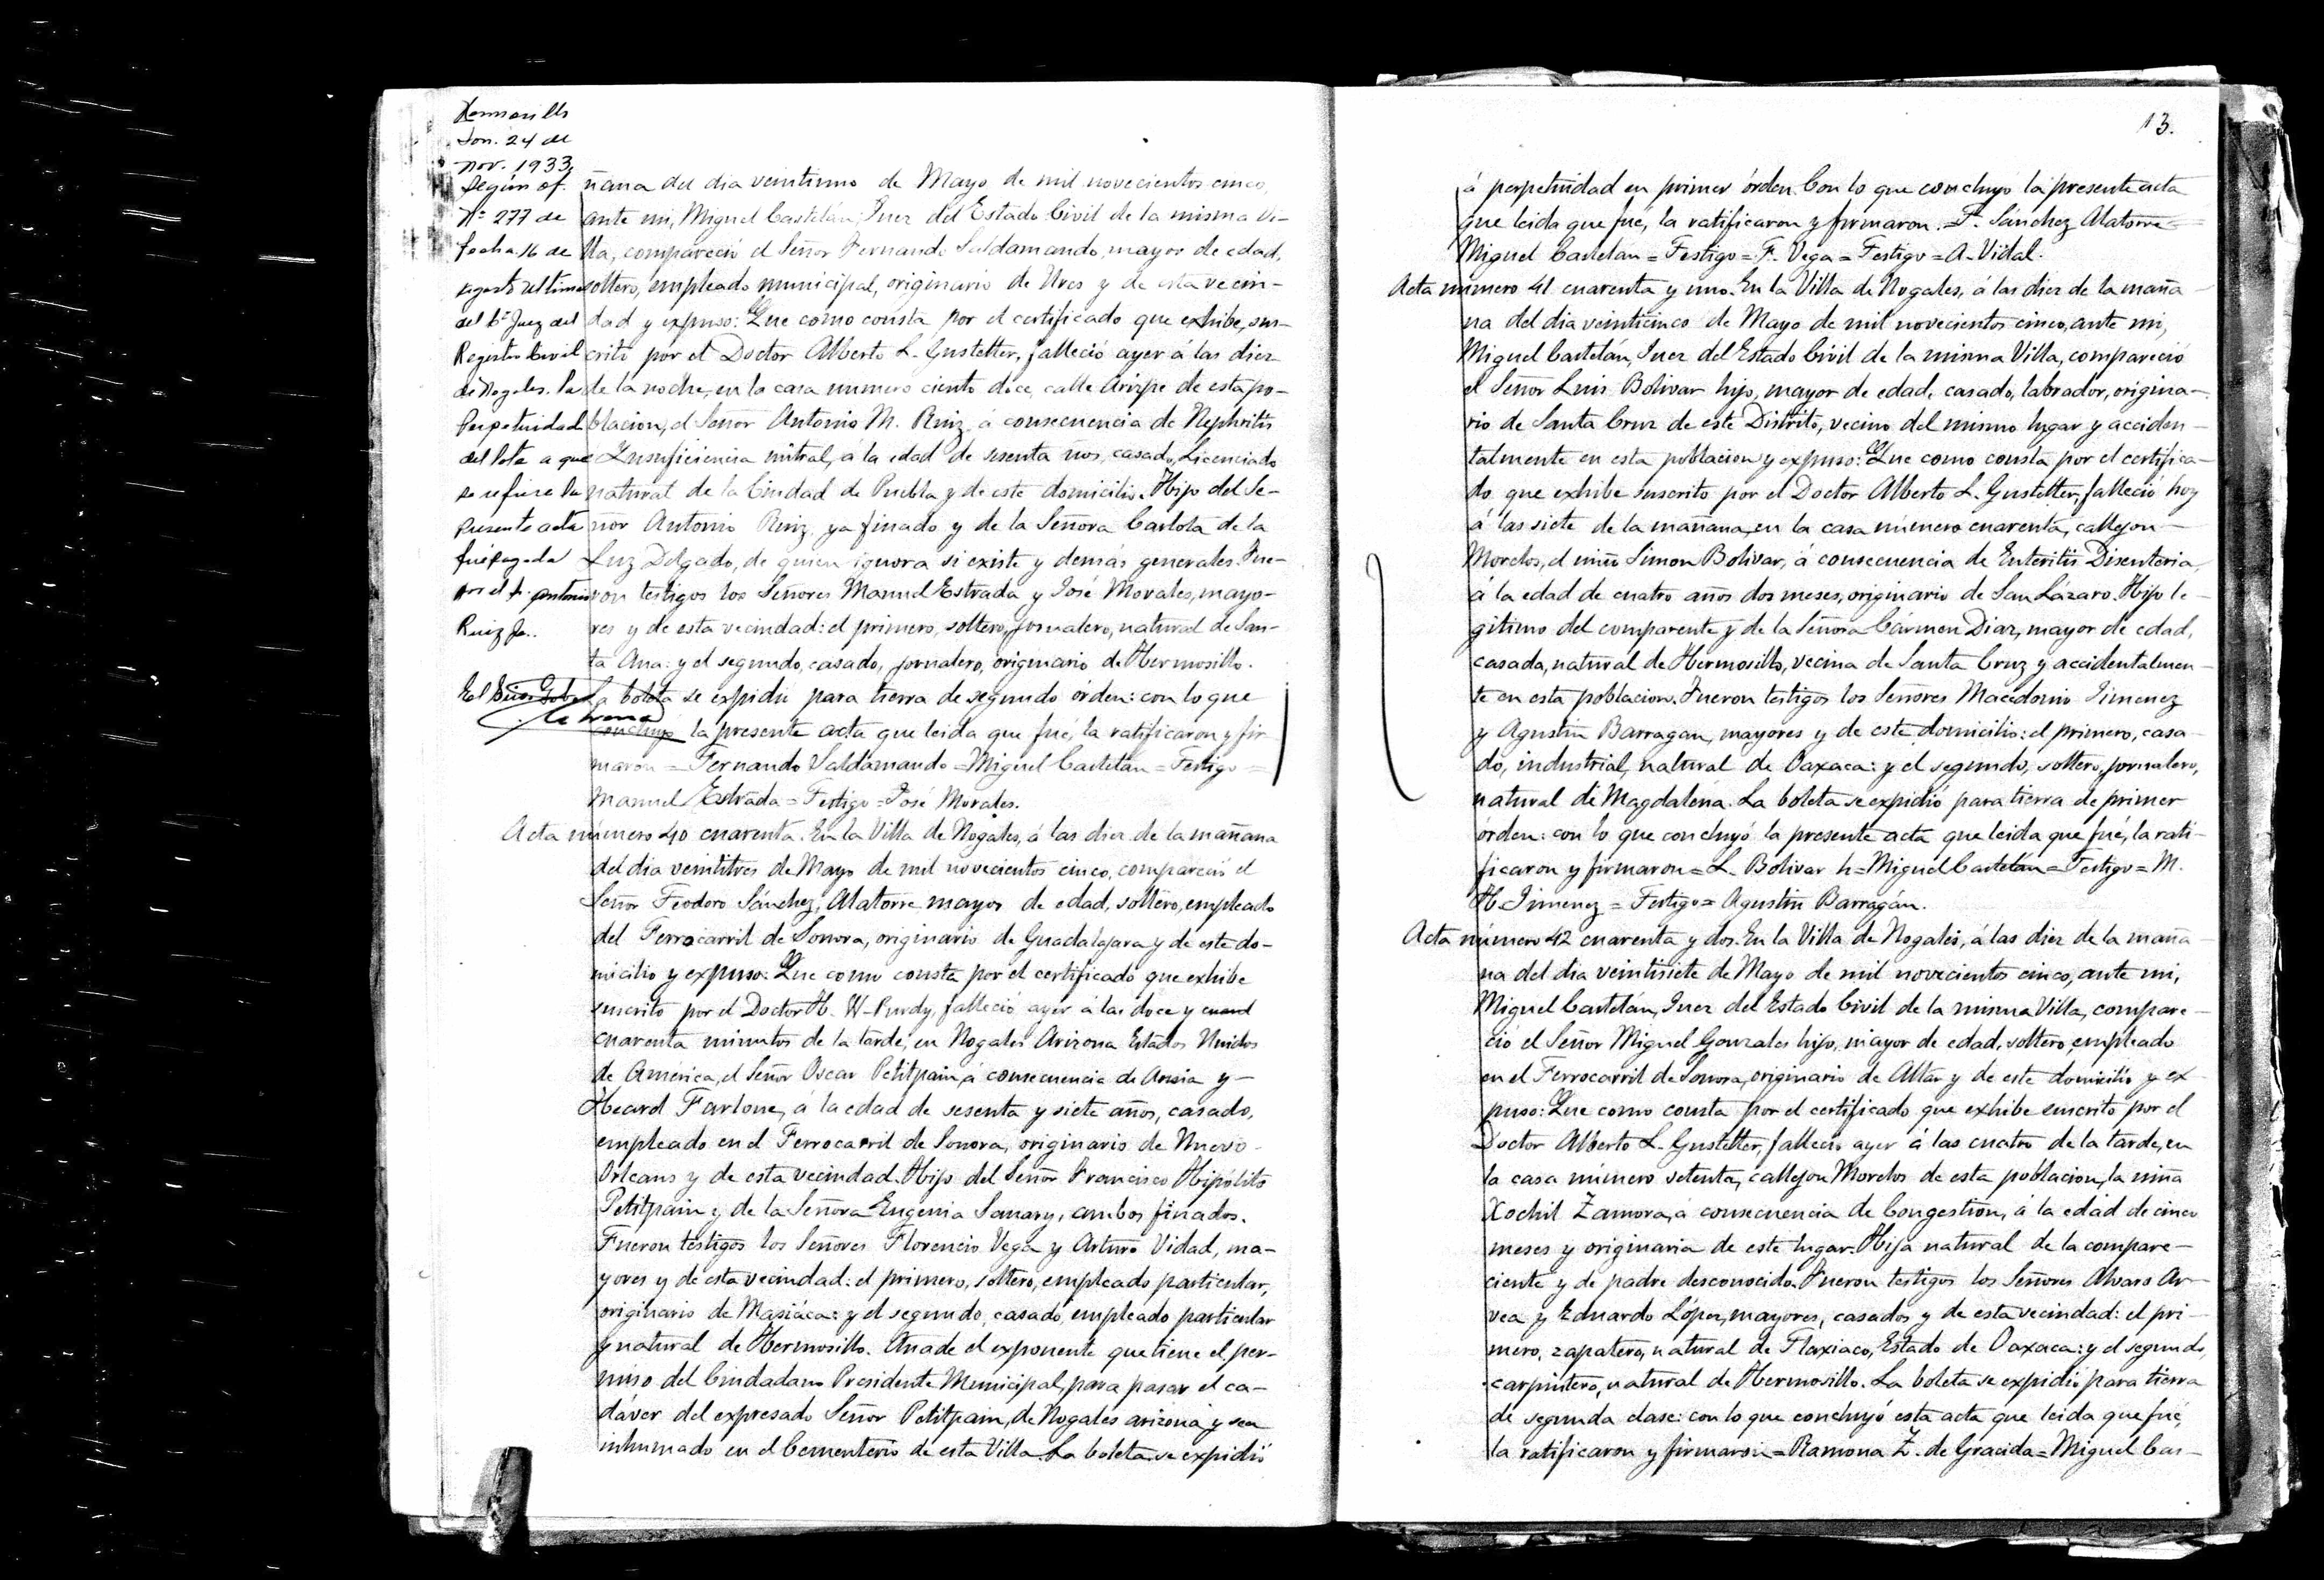 Hermosillo
Son. 24 de
nov. 1933
Según of.
Nº 277 de
fecha 16 de
agosto ultimo
del C. Juez del
Registro Civil
de Nogales. La
Perpetuidad
del lote a que
se refiere la
presente acta
fue pagada
por el Sr. Antonio
Ruiz Jr..
ñana del dia veintiuno de Mayo de mil novecientos cinco,
ante mi, Miguel Castelán, Juez del Estado Civil de la misma Vi-
lla, compareció el Señor Fernando Saldamando, mayor de edad,
soltero, empleado municipal, originario de Ures y de esta vecin-
dad y expuso: Que como consta por el certificado que exhibe, sus-
crito por el Doctor Alberto L. Gustetter, falleció ayer á las diez
de la noche, en la casa numero ciento doce, calle Arizpe de esta po-
blacion, el Señor Antonio M. Ruiz á consecuencia de Nephritis
Insuficiencia mitral, á la edad de sesenta ños, casado, Licenciado
natural de la Ciudad de Puebla y de este domicilio. Hijo del Se-
ñor Antonio Ruiz ya finado y de la Señora Carlota de la
Luz Delgado, de quien ignora si existe y demás generales. Fue-
ron testigos los Señores Manuel Estrada y José Morales, mayo-
res y de esta vecindad: el primero, soltero, jornalero, natural de San-
ta Ana: y el segundo, casado, jornalero, originario de Hermosillo.
La boleta se expidió para tierra de segundo órden: con lo que
concluyó la presente acta que leida que fué, la ratificaron y fir
maron = Fernando Saldamando = Miguel Castelan = Testigo =
Manuel Estrada = Testigo = José Morales.
Acta número 40 cuarenta. En la Villa de Nogales, á las diez de la mañana
del dia veintitres de Mayo de mil novecientos cinco, compareció el
Señor Teodoro Sánchez Alatorre mayor de edad, soltero, empleado
del Ferrocarril de Sonora, originario de Guadalajara y de este do-
micilio y expuso: Que como consta por el certificado que exhibe
suscrito por el Doctor H. W. Purdy, falleció ayer á las doce y cuard
cuarenta minutos de la tarde, en Nogales Arizona Estados Unidos
de America, el Señor Oscar Petitpain, á consecuencia de Ansia y -
Heard Farlone, á la edad de sesenta y siete años, casado,
empleado en el Ferrocarril de Sonora, originario de Nuevo
Orleans y de esta vecindad. Hijo del Señor Francisco Hipólito
Petitpain y de la Señora Eugenia Sanary, ambos finados.
Fueron testigos los Señores Florencio Vega y Arturo Vidad, ma-
yores y de esta vecindad: el primero, soltero, empleado particular,
originario de Masiáca: y el segundo, casado, empleado particular
y natural de Hermosillo. Anade el exponente que tiene el per-
miso del Ciudadano Presidente Municipal, para pasar el ca-
dáver del expresado Señor Petitpain, de Nogales arizona y sea
inhumado en el Cementerio de esta Villa. La boleta se expidió
13.
á perpetuidad en primer órden. Con lo que concluyó la presente acta
que leida que fué, la ratificaron y firmaron. = T. Sánchez Alatorre =
Miguel Castelan = Testigo = F. Vega = Testigo = A. Vidal.
Acta número 41 cuarenta y uno. En la Villa de Nogales, á las diez de la maña
na del dia veinticinco de Mayo de mil novecientos cinco, ante mi,
Miguel Castelán, Juez del Estado Civil de la misma Villa, compareció
el Señor Luis Bolivar hijo, mayor de edad, casado, labrador, origina-
rio de Santa Cruz de este Distrito, vecino del mismo lugar y acciden-
talmente en esta poblacion y expuso: Que como consta por el certifica-
do que exhibe suscrito por el Doctor Alberto L. Gustetter, falleció hoy
á las siete de la mañana, en la casa número cuarenta, callejon
Morelos, el niño Simon Bolivar, á consecuencia de Enteritis Disenteria,
á la edad de cuatro años dos meses, originario de San Lázaro. Hijo le-
gitimo del comparente y de la Señora Cármen Diaz, mayor de edad,
casada, natural de Hermosillo, vecina de Santa Cruz y accidentalmen-
te en esta poblacion. Fueron testigos los Señores Macedonio Jimenez
y Agustin Barragan, mayores y de este domicilio: el primero, casa-
do, industrial, natural de Oaxaca: y el segundo, soltero, jornalero,
natural de Magdalena. La boleta se expidió para tierra de primer
órden: con lo que concluyó la presente acta que leida que fué, la rati-
ficaron y firmaron = L. Bolivar h = Miguel Castelan = Testigo = M.
H. Jimenez = Testigo = Agustin Barragán.
Acta número 42 cuarenta y dos. En la Villa de Nogales, á las diez de la maña
na del dia veintisiete de Mayo de mil novecientos cinco, ante mi,
Miguel Castelán, Juez del Estado Civil de la misma Villa, compare-
ció el Señor Miguel Gonzales hijo, mayor de edad, soltero, empleado
en el Ferrocarril de Sonora, originario de Altar y de este domicilio y ex-
puso: Que como consta por el certificado que exhibe suscrito por el
Doctor Alberto L. Gustetter, falleció ayer á las cuatro de la tarde, en
la casa número setenta, callejon Morelos de esta poblacion, la niña
Xochil Zamora, á consecuencia de Congestion, á la edad de cinco
meses y originaria de este lugar. Hija natural de la compare-
ciente y de padre desconocido. Fueron testigos los Señores Alvaro Ar-
vea y Eduardo López, mayores, casados y de esta vecindad: el pri-
mero, zapatero, natural de Tlaxiaco, Estado de Oaxaca: y el segundo,
carpintero, natural de Hermosillo. La boleta se expidió para tierra
de segunda clase: con lo que concluyó esta acta que leida que fué,
la ratificaron y firmaron = Ramona Z. de Gracida = Miguel Cas-